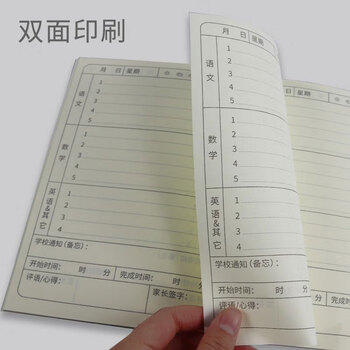 双面印刷
月 日 星期
语文
1
2
3
4
5
数学
1
2
3
4
5
英语&其它
1
2
3
4
学校通知(备忘):
开始时间: 时 分 完成时间: 时 分
评语/心得: 家长签字:
月 日 星期
语文
1
2
3
4
5
数学
1
2
3
4
5
英语&其它
1
2
3
4
学校通知(备忘):
开始时间: 时 分
评语/心得: